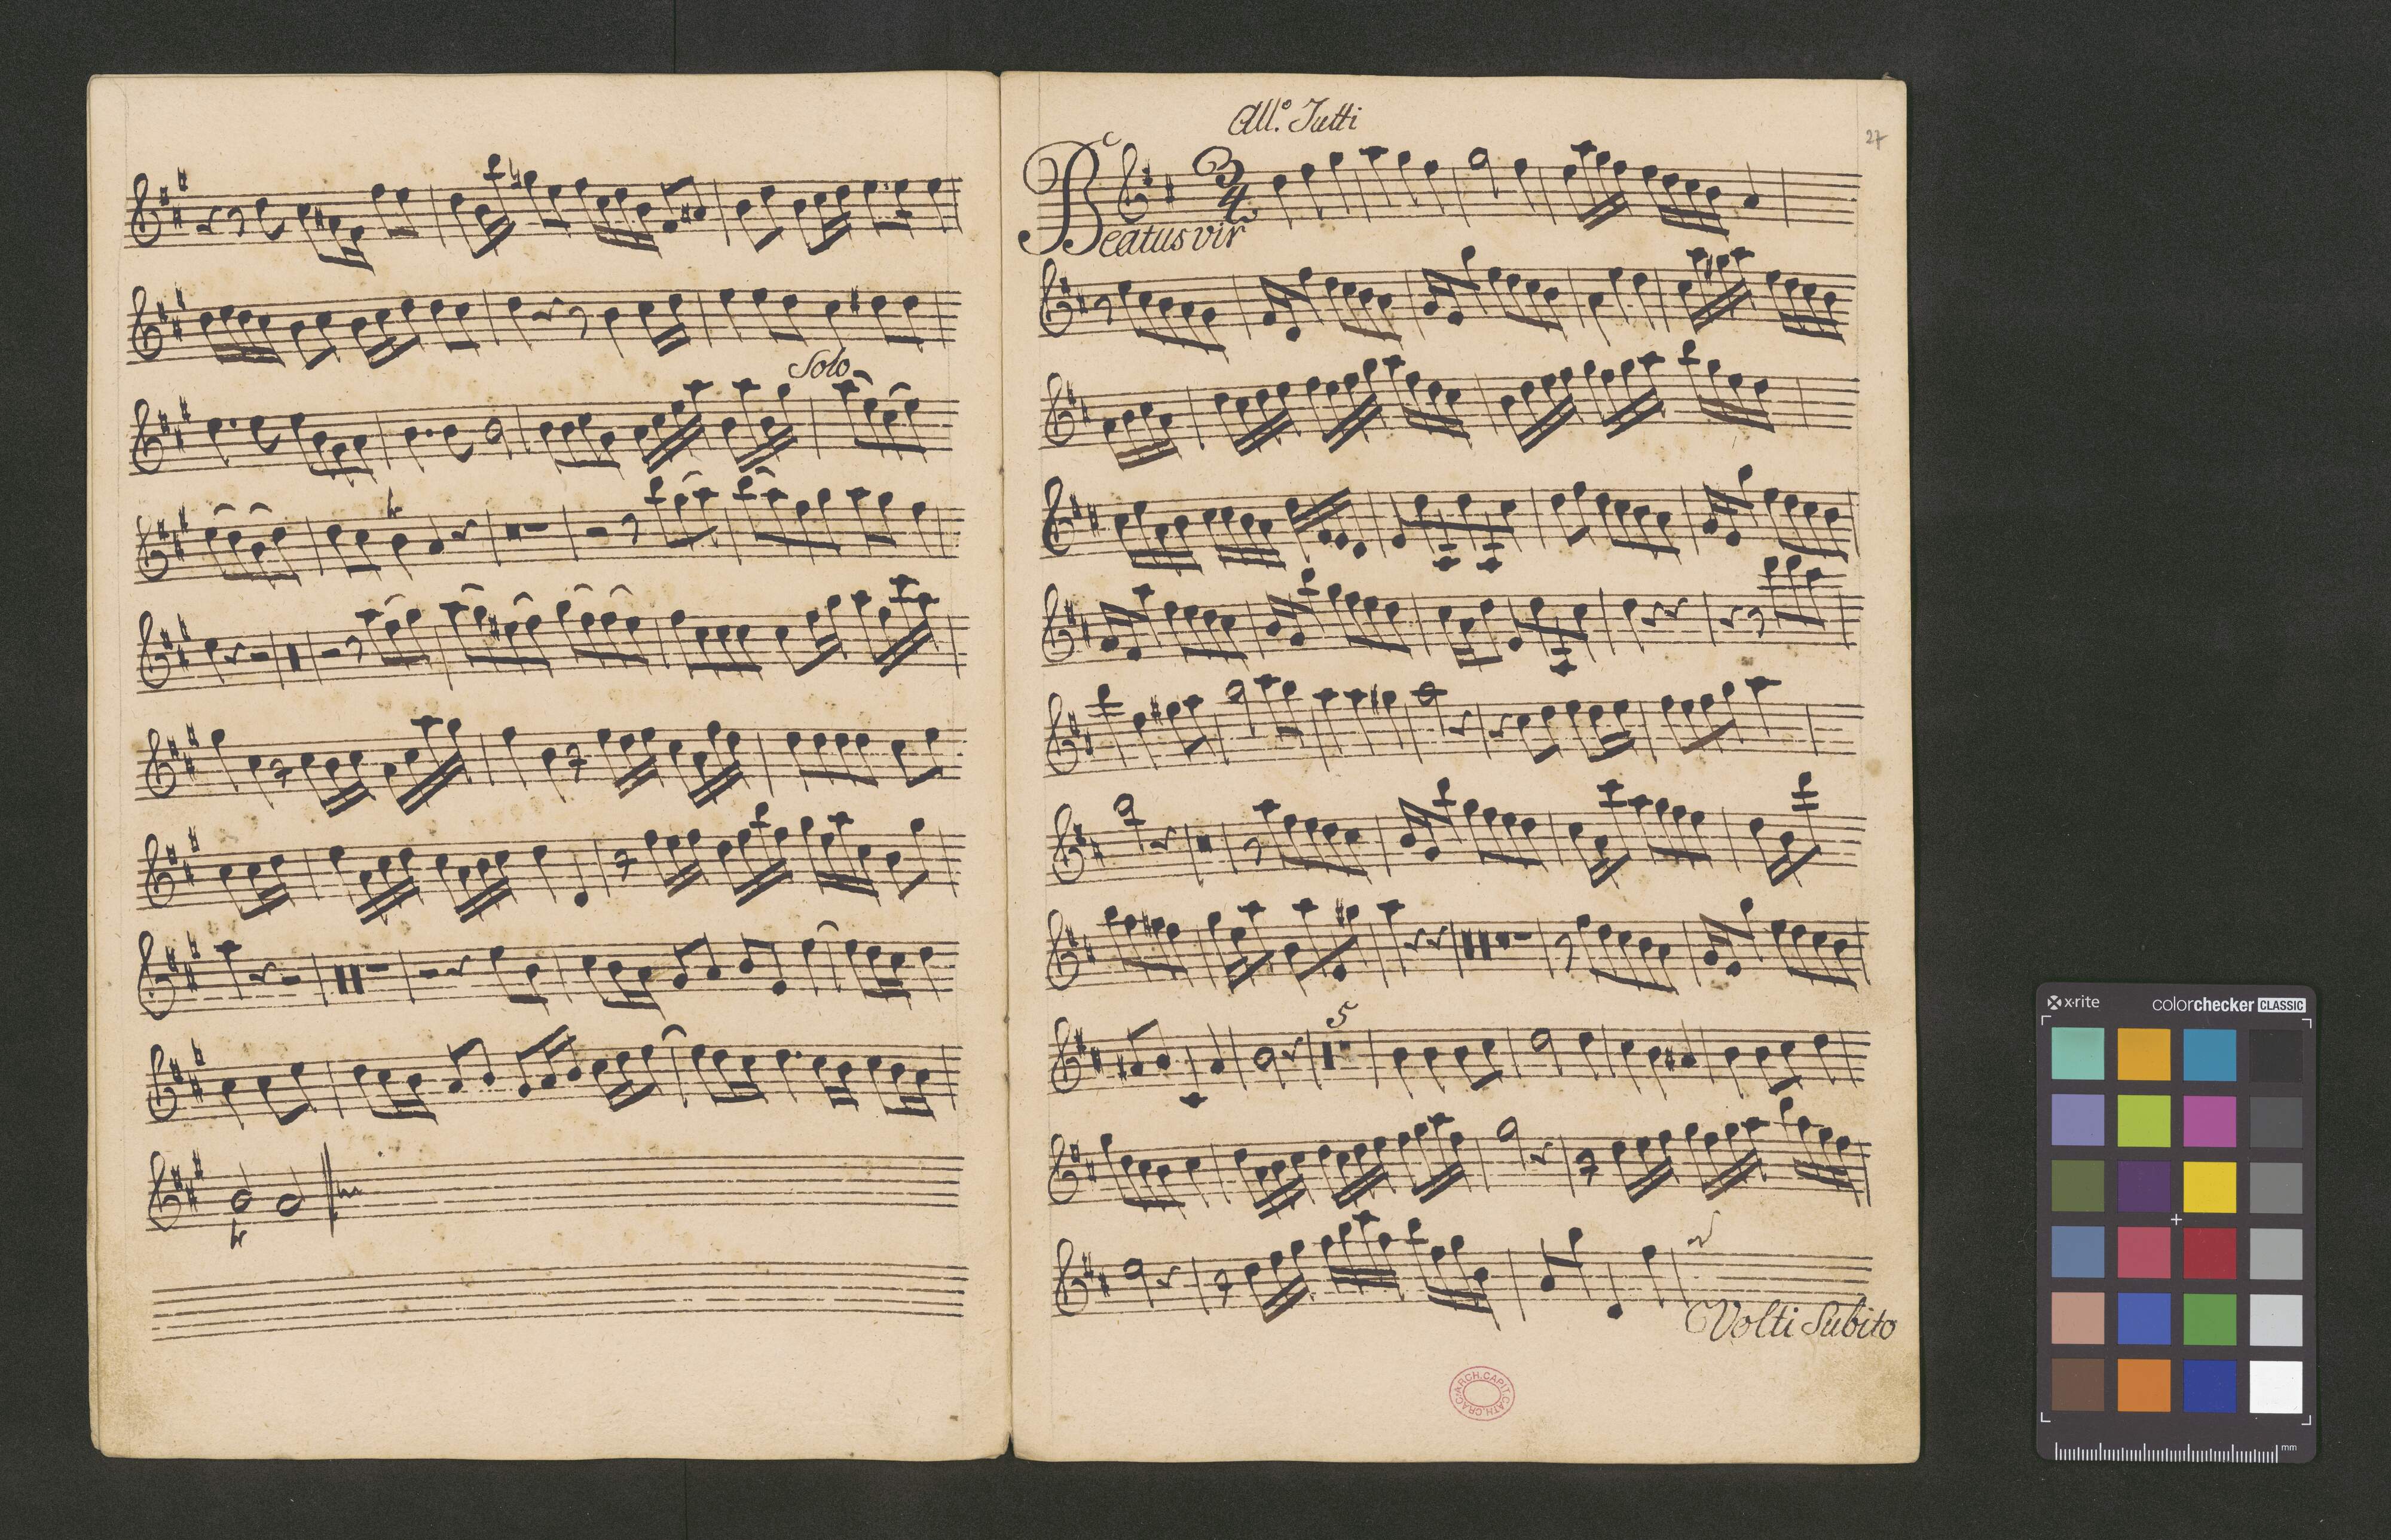 Solo
All.º Tutti
27
3
4
Beatus vir
5
Volti Subito
ARCH.CAPIT.CATH.CRAC
x-rite
colorchecker CLASSIC
mm